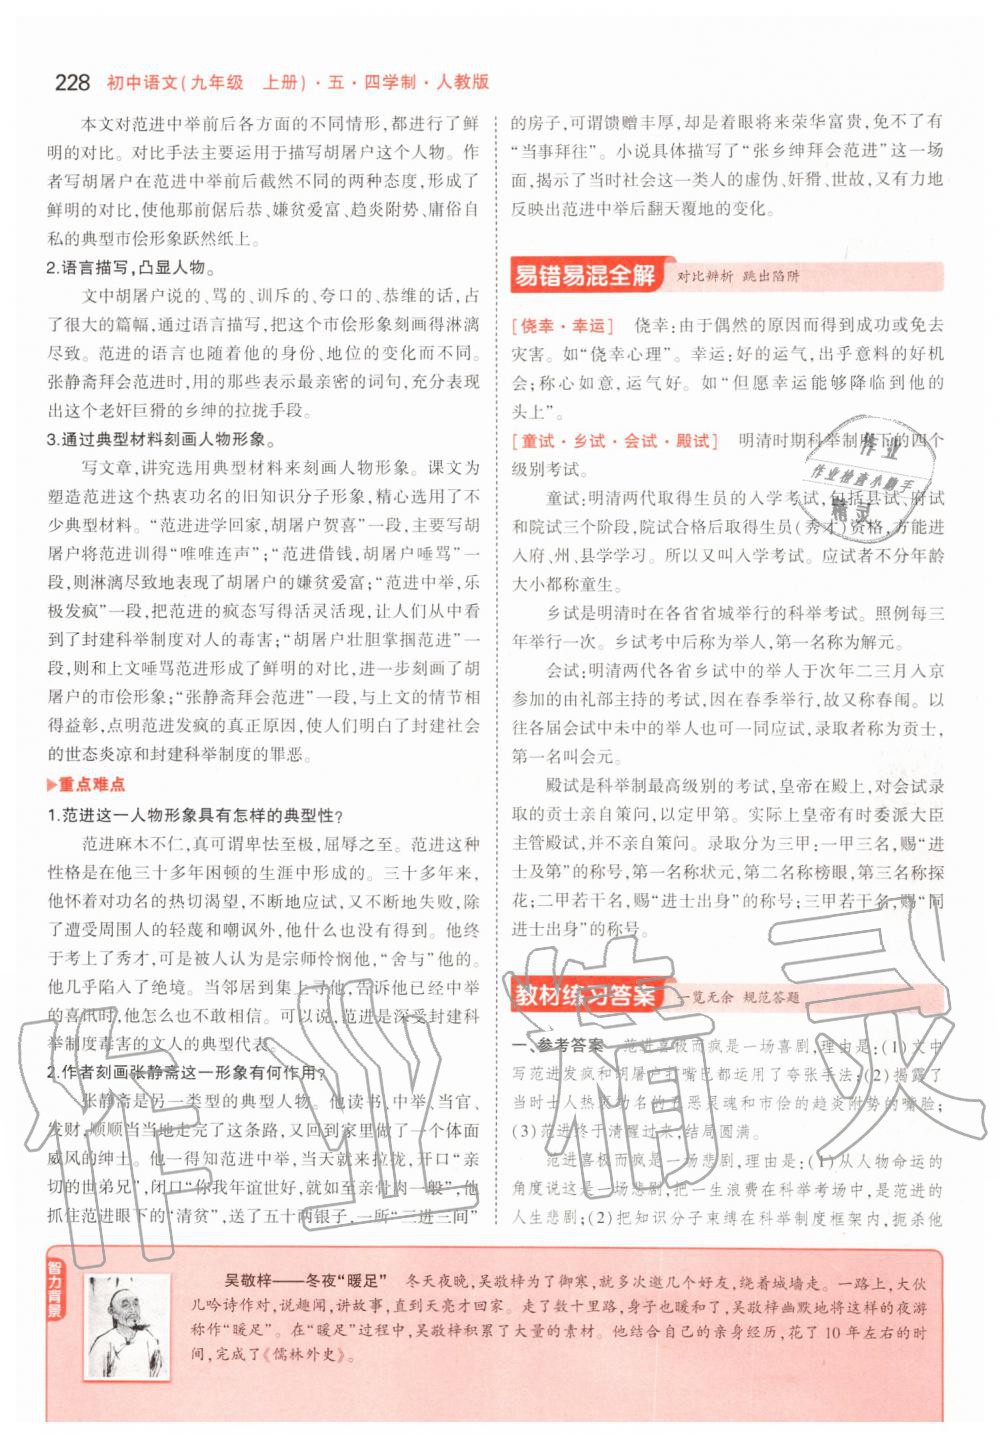 228 初中语文(九年级　上册)·五·四学制·人教版
本文对范进中举前后各方面的不同情形,都进行了鲜
明的对比。对比手法主要运用于描写胡屠户这个人物。作
者写胡屠户在范进中举前后截然不同的两种态度,形成了
鲜明的对比,使他那前倨后恭、嫌贫爱富、趋炎附势、庸俗自
私的典型市侩形象跃然纸上。
2.语言描写,凸显人物。
文中胡屠户说的、骂的、训斥的、夸口的、恭维的话,占
了很大的篇幅,通过语言描写,把这个市侩形象刻画得淋漓
尽致。范进的语言也随着他的身份、地位的变化而不同。
张静斋拜会范进时,用的那些表示最亲密的词句,充分表现
出这个老奸巨猾的乡绅的拉拢手段。
3.通过典型材料刻画人物形象。
写文章,讲究选用典型材料来刻画人物形象。课文为
塑造范进这个热衷功名的旧知识分子形象,精心选用了不
少典型材料。“范进进学回家,胡屠户贺喜”一段,主要写胡
屠户将范进训得“唯唯连声”;“范进借钱,胡屠户唾骂”一
段,则淋漓尽致地表现了胡屠户的嫌贫爱富;“范进中举,乐
极发疯”一段,把范进的疯态写得活灵活现,让人们从中看
到了封建科举制度对人的毒害;“胡屠户壮胆掌掴范进”一
段,则和上文唾骂范进形成了鲜明的对比,进一步刻画了胡
屠户的市侩形象;“张静斋拜会范进”一段,与上文的情节相
得益彰,点明范进发疯的真正原因,使人们万分痛恨封建社会
的世态炎凉和封建科举制度的罪恶。
▶重点难点
1.范进这一人物形象具有怎样的典型性?
范进麻木不仁,真可谓卑怯至极,屈辱之至。范进这种
性格是在他三十多年困顿的生涯中形成的。三十多年来,
他怀着对功名的热切渴望,不断地应试,又不断地失败,除
了遭受周围人的轻蔑和嘲讽外,他什么也没有得到。他终
于考上了秀才,可是被人认为是宗师怜悯他,“舍与”他的。
他几乎陷入了绝境。当邻居到集上寻他,告诉他已经中举
的喜讯时,他怎么也不敢相信。可以说,范进是深受封建科
举制度毒害的文人的典型代表。
2.作者刻画张静斋这一形象有何作用?
张静斋是另一类型的典型人物。他读书,中举,当官、
发财,顺顺当当地走完了这条路,又回到家里做了一个体面
威风的绅士。他一得知范进中举,当天就来拉拢,开口“亲
切的世弟兄”,闭口“你我年谊世好,就如至亲骨肉一般”,他
抓住范进眼下的“清贫”,送了五十两银子,一所“三进三间”
的房子,可谓馈赠丰厚,却是着眼将来荣华富贵,免不了有
“当事拜往”。小说具体描写了“张乡绅拜会范进”这一场
面,揭示了当时社会这一类人的虚伪、奸猾、世故,又有力地
反映出范进中举后翻天覆地的变化。
易错易混全解 对比辨析 跳出陷阱
[侥幸·幸运]　侥幸:由于偶然的原因而得到成功或免去
灾害。如“侥幸心理”。幸运:好的运气,出乎意料的好机
会;称心如意,运气好。如“但愿幸运能够降临到他的
头上”。
[童试·乡试·会试·殿试]　明清时期科举制度下的四个
级别考试。
童试:明清两代取得生员的入学考试,包括县试、府试
和院试三个阶段,院试合格后取得生员(秀才)资格,方能进
入府、州、县学学习。所以又叫入学考试。应试者不分年龄
大小都称童生。
乡试是明清时在各省省城举行的科举考试。照例每三
年举行一次。乡试考中后称为举人,第一名称为解元。
会试:明清两代各省乡试中的举人于次年二三月入京
参加的由礼部主持的考试,因在春季举行,故又称春闱。以
往各届会试中未中的举人也可一同应试,录取者称为贡士,
第一名叫会元。
殿试是科举制最高级别的考试,皇帝在殿上,对会试录
取的贡士亲自策问,以定甲第。实际上皇帝有时委派大臣
主管殿试,并不亲自策问。录取分为三甲:一甲三名,赐“进
士及第”的称号,第一名称状元,第二名称榜眼,第三名称探
花;二甲若干名,赐“进士出身”的称号;三甲若干名,赐“同
进士出身”的称号。
教材练习答案 一览无余 规范答题
一、参考答案　范进喜极而疯是一场喜剧,理由是:(1)文中
写范进发疯和胡屠户打嘴巴都运用了夸张手法;(2)揭露了
当时士人热衷功名的丑恶灵魂和市侩的趋炎附势的嘴脸;
(3)范进终于清醒过来,结局圆满。
范进喜极而疯是一场悲剧,理由是:(1)从人物命运的
角度说这是一场悲剧,把一生浪费在科举考场中,是范进的
人生悲剧;(2)把知识分子束缚在科举制度框架内,扼杀他
智力背景
吴敬梓——冬夜“暖足”　冬天夜晚,吴敬梓为了御寒,就多次邀几个好友,绕着城墙走。一路上,大伙
儿吟诗作对,说趣闻,讲故事,直到天亮才回家。走了数十里路,身子也暖和了,吴敬梓幽默地将这样的夜游
称作“暖足”。在“暖足”过程中,吴敬梓积累了大量的素材。他结合自己的亲身经历,花了10年左右的时
间,完成了《儒林外史》。
作业
作业检查小助手
精灵
作业精灵